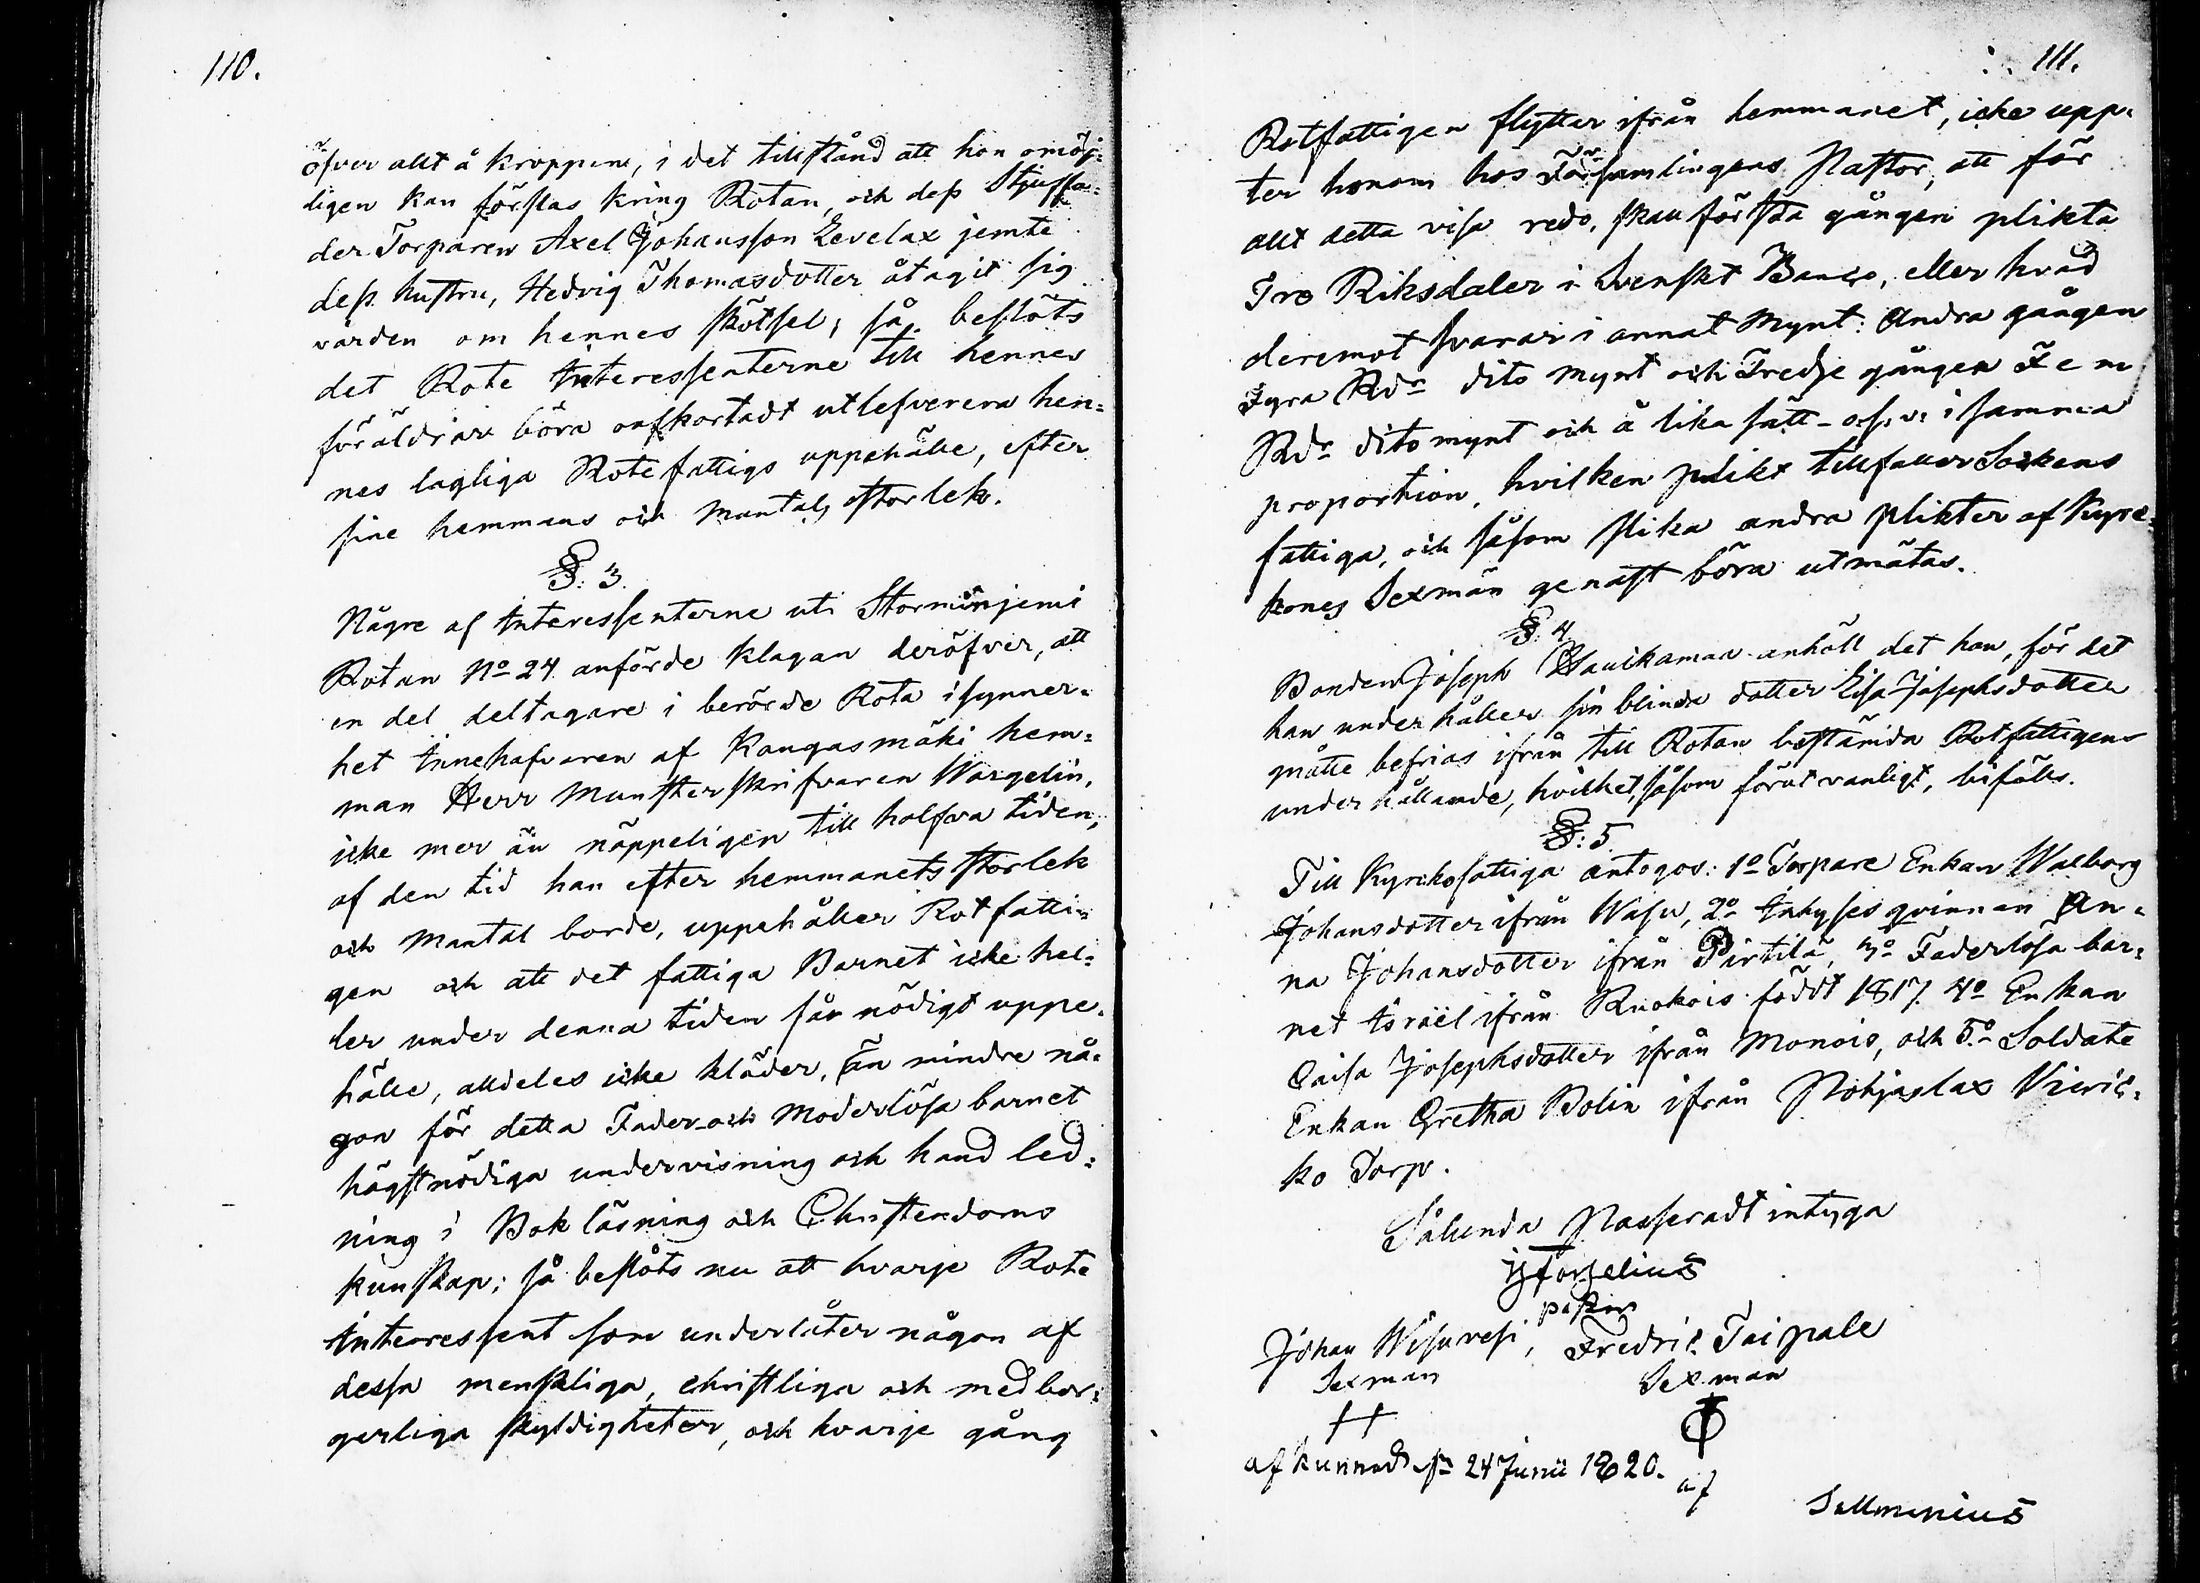 110.
öfver allt å kroppen, i det tillstånd att hon omöj=
ligen kan förslas kring Rotan, och dess Stjuffa=
der Torparen Axel Johansson Levelax jemte
dess hustru, Hedvig Thomasdotter åtagit sig
vården om hennes skötsel; så beslöts
det Rote Interessenterne till hennes
föräldrar böra oafkortadt utlefverera hen=
nes lagliga Rotefattigs uppehälle, efter
sine hemmans och Mantals storlek.
§: 3.
Någre af Interessenterne uti Storminjemi
Rotan No 24 anförde klagan deröfver, att
en del deltagare i berörde Rota isynner=
het Innehafvaren af Kangasmäki hem=
man Herr Munsterskrifvaren Wargelin,
icke mer än näppeligen till halfva tiden,
af den tid han efter hemmanets storlek
och Mantal borde, uppehåller Rotfatti=
gen och att det fattiga Barnet icke hel=
ler under denna tiden får nödigt uppe=
hälle, alldeles icke kläder, än mindre nå=
gon för detta Fader- och Moderlösa barnet
högstnödiga undervisning och hand led=
ning i Bok läsning och Christendoms
kunskap; så beslöts nu att hvarje Rote
Interessent som underlåter någon af
dessa menskliga, christliga och medbor=
gerliga skyldigheter, och hvarje gång
111.
Rotfattigen flyttar ifrån hemmanet, icke upp=
ter honom hos Församlingens Pastor, att för
allt detta visa redo, skall första gången plikta
Tre Riksdaler i Svenskt Banco, eller hvad
deremot svarar i annat Mynt: Andra gången
Fyra Rdr dito mynt och Tredje gången Fem
Rdr dito mynt och å lika sätt o.s.v. i samma
proportion, hvilken plikt tillfaller Sockens
fattiga, och såsom slika andra plikter af Kyrc=
kones Sexmän genast böra utmätas.
§: 4
Bonden Joseph anhöll det han, för det
han underhåller sin blinda dotter Lisa Josephsdotter
måtte befrias ifrån till Rotan bestämda Rotfattigens
underhållande, hvilket, såsom förut vanligt, bifölls.
§: 5.
Till Kyrckofattiga antogos: 1o Torpare Enkan Walborg
Johansdotter ifrån Wasu, 2o Inhyses qvinnan An=
na Johansdotter ifrån Pirtilä, 3o Faderlösa bar=
net Israël ifrån Ruokois födt 1817. 4o Enkan
Caisa Josephsdotter ifrån Monois, och 5o Soldate
Enkan Gretha Bolin ifrån Pohjaslax
ko Torp.
Sålunda Passeradt intyga
Forselius
pastor
Johan Wesivesi, Fredric Taipale
Sexman Sexman
afkunnad 24 Junii 1820.
af
Sallmenius